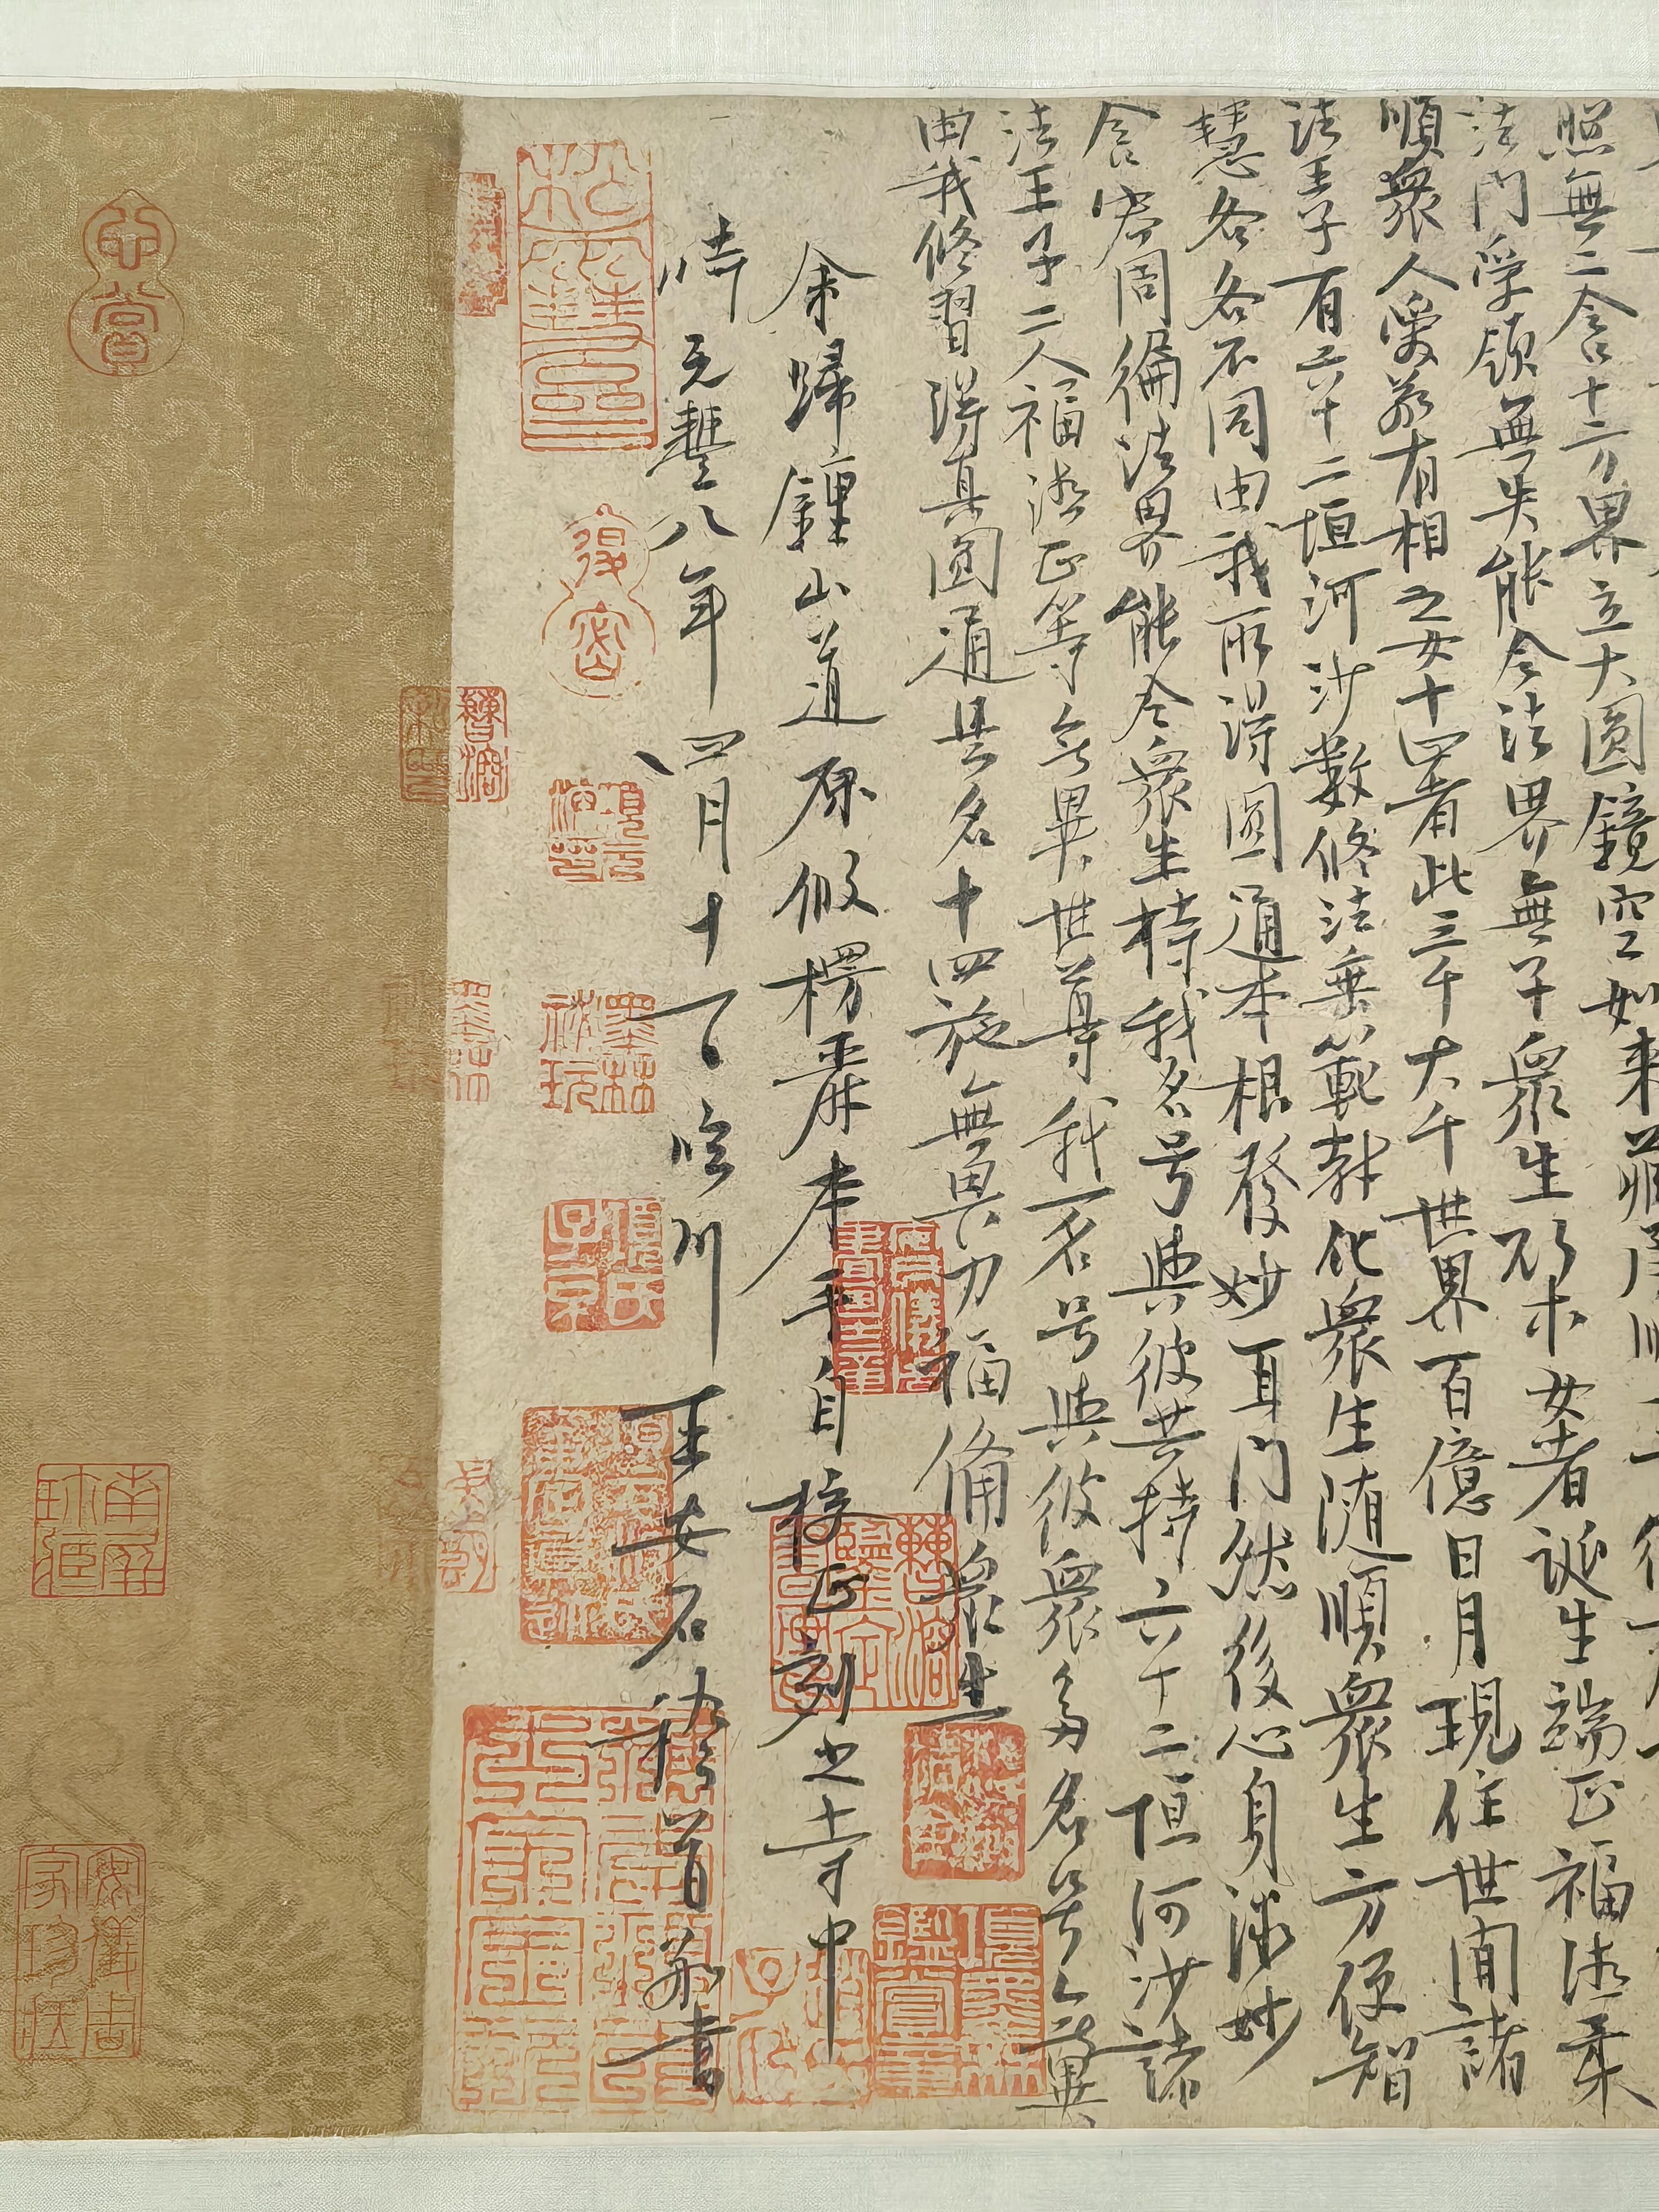 照無二含十方界立大圓鏡空如来藏承順
法門受領無失能令法界無子衆生欲求女者誕生端正福德柔
順衆人愛敬有相之女十四者此三千大千世界百億日月現住世間諸
法王子有六十二恒河沙數修法垂範教化衆生随順衆生方便智
慧各各不同由我所得圓通本根發妙耳門然後心身微妙
含容周徧法界能令衆生持我名号與彼共持六十二恒河沙諸
法王子二人福德正等无異世尊我一名号與彼衆多名号无異
由我修習得真圓通是名十四施無畏力福俻衆生
余歸鍾山道原假楞嚴本手自校正刻之寺中
時元豐八年四月十一日臨川王安石稽首敬書
項元汴印
墨林祕玩
項氏子京
項墨林鑑賞章